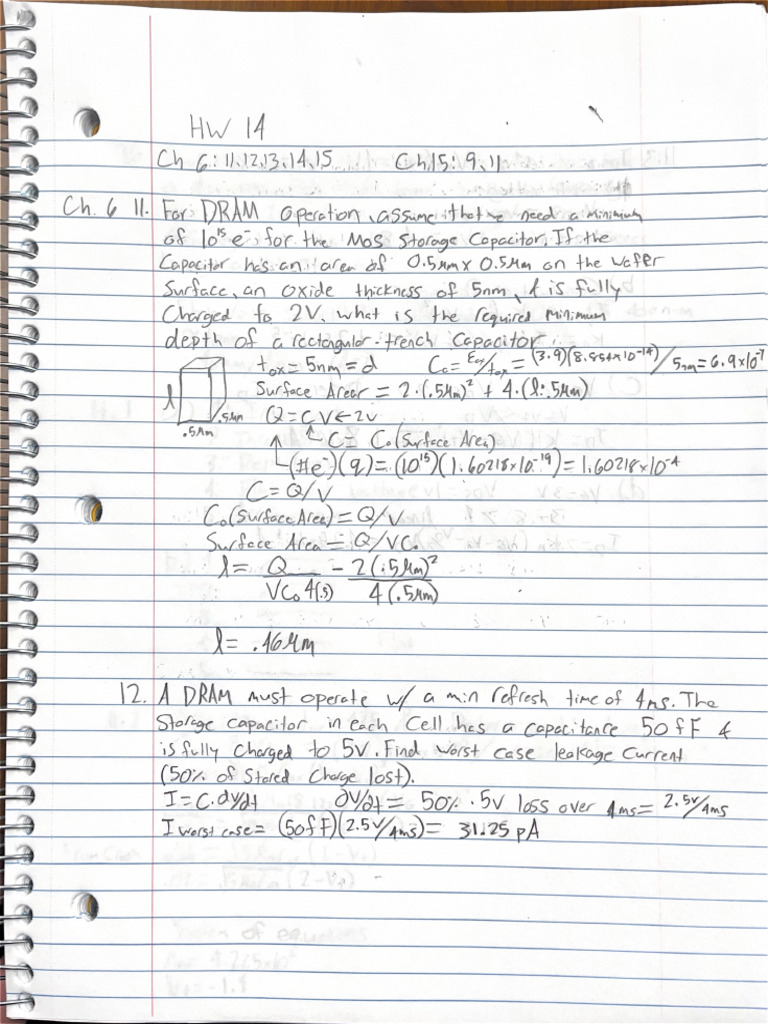 HW 14
Ch 6: 11,12,13,14,15 Ch.15: 9,11
Ch. 6 11. For DRAM operation, assume that we need a minimum
of 10^15 e^- for the MOS Storage Capacitor. If the
Capacitor has an area of 0.5μm x 0.5μm on the wafer
Surface, an oxide thickness of 5nm, & is fully
Charged to 2V. what is the required minimum
depth of a rectangular-trench Capacitor.
tox = 5nm = d Co = Eox/tox = (3.9)(8.854x10^-14)/5nm = 6.9x10^-7
l .5μm .5μm
Surface Area = 2·(.5μm)^2 + 4·(l·.5μm)
Q = CV ← 2v
C = Co(Surface Area)
(#e^-)(q) = (10^15)(1.60218x10^-19) = 1.60218x10^-4
C = Q/V
Co(Surface Area) = Q/V
Surface Area = Q/VCo
l = Q/VCo4(.5) - 2(.5μm)^2/4(.5μm)
l = .46μm
12. A DRAM must operate w/ a min refresh time of 4ms. The
Storage capacitor in each Cell has a capacitance 50fF &
is fully Charged to 5V. Find worst case leakage Current
(50% of Stored Charge lost).
I = C·dv/dt ∂V/∂t = 50%·5v loss over 4ms = 2.5v/4ms
I worst case = (50fF)(2.5v/4ms) = 31.25 pA